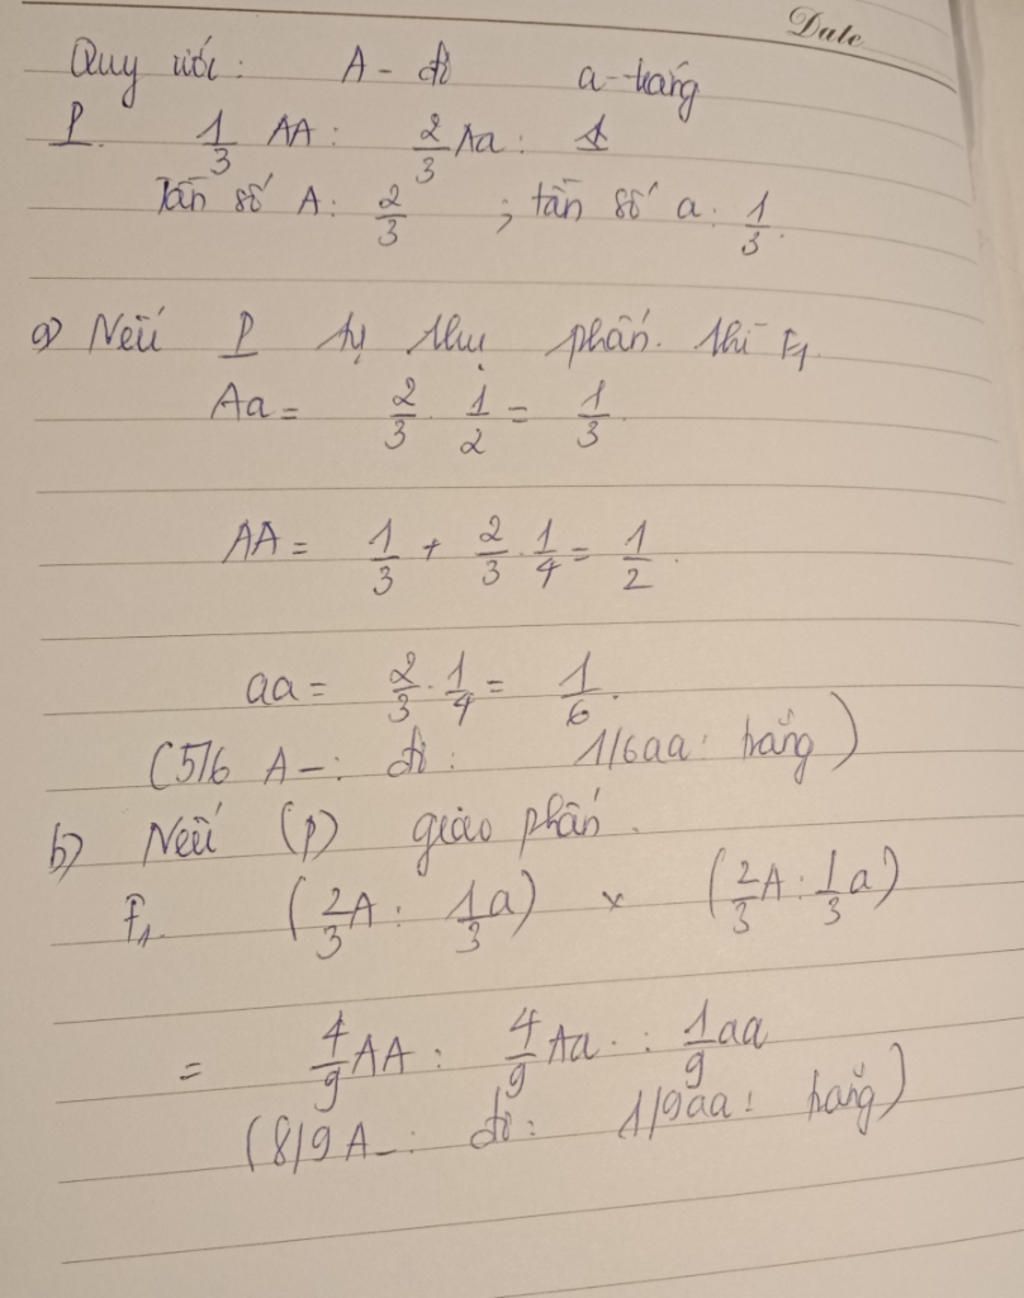 Date
Quy ước: A - đỏ a - trắng
P. 1/3 AA: 2/3 Aa:
Tần số A: 2/3 ; tần số a. 1/3.
a) Nếu P tự thụ phấn. thì F1.
Aa = 2/3 . 1/2 = 1/3.
AA = 1/3 + 2/3 . 1/4 = 1/2.
aa = 2/3 . 1/4 = 1/6.
(5/6 A-: đỏ: 1/6aa: trắng)
b) Nếu (P) giao phấn.
F1. (2/3 A: 1/3 a) x (2/3 A: 1/3 a)
= 4/9 AA: 4/9 Aa.: 1/9 aa
(8/9 A-: đỏ: 1/9aa: trắng)